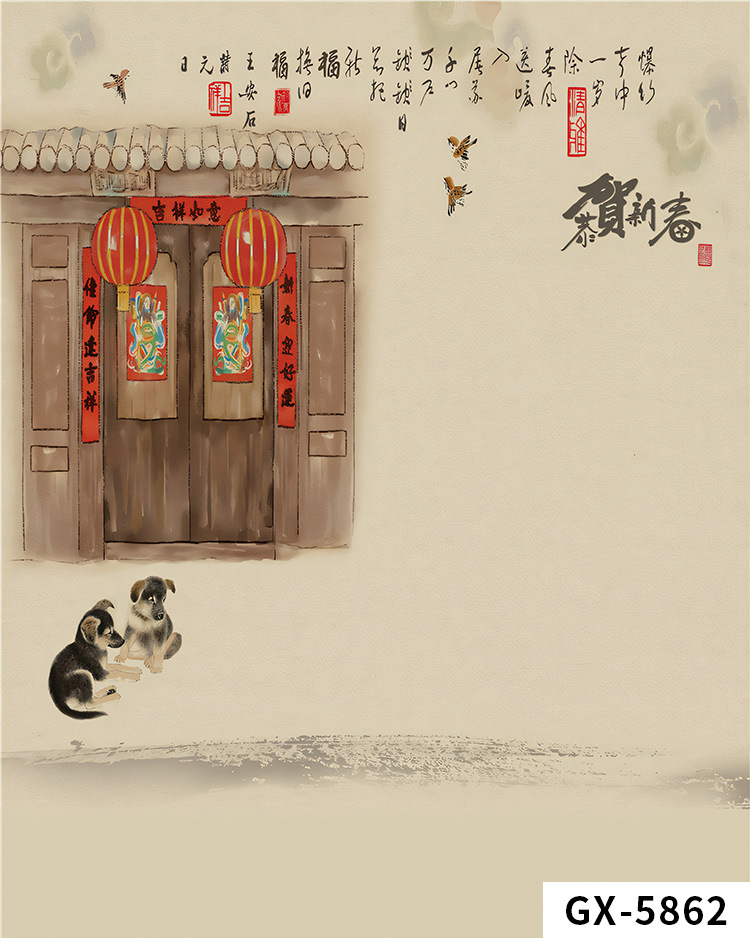 爆竹
声中
一岁
除
春风
送暖
入
屠苏
千门
万户
日
总把
新
福
换旧
福
王安石
诗
元
日
清雅
吉祥
恭贺新春
吉祥如意
新春迎好運
佳節逢吉祥
GX-5862